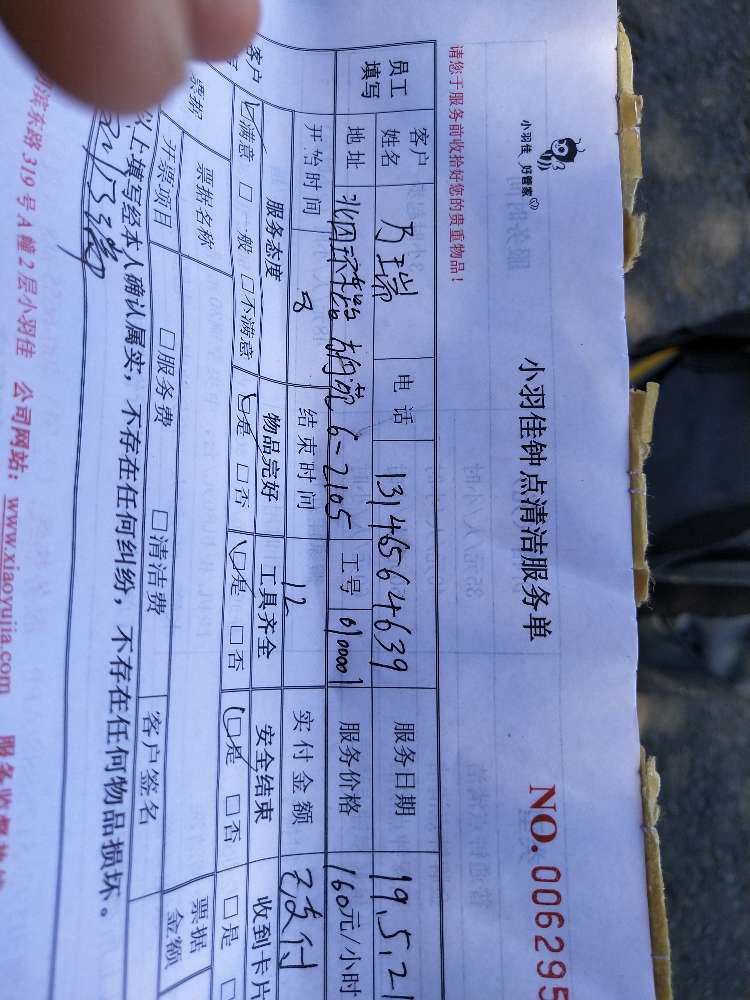 小羽佳 好管家
小羽佳钟点清洁服务单
NO. 006295
请您于服务前收拾好您的贵重物品!
员工填写 客户姓名 瑞 电话 13146564639 服务日期 19.5.21
地址 6-2105 工号 610001 服务价格 160元/小时
开始时间 8 结束时间 12 实付金额 已支付
客户 服务态度 物品完好 工具齐全 安全结束 收到卡片
☑满意 □一般 □不满意 ☑是 □否 ☑是 □否 ☑是 □否 □是 □
票据 票据名称 客户签名 票据金额
开票项目 □服务费 □清洁费
以上填写经本人确认属实，不存在任何纠纷，不存在任何物品损坏。
东路319号A幢2层小羽佳 公司网站：www.xiaoyujia.com